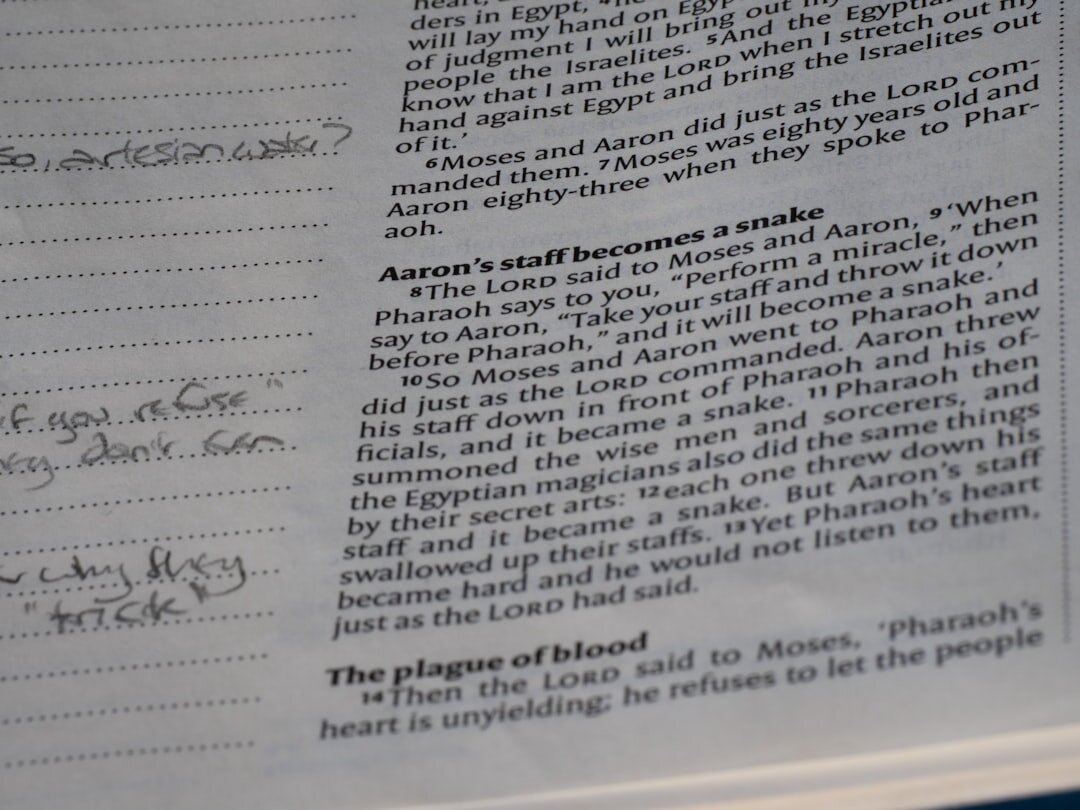 So, artesian water?
if you refuse"
they don't
why they
"trick"
heart,
ders in Egypt,
will lay my hand on Egyp
of judgment I will bring out my
people the Israelites. 5And the Egyptian
know that I am the LORD when I stretch out my
hand against Egypt and bring the Israelites out
of it.'
6Moses and Aaron did just as the LORD com-
manded them. 7Moses was eighty years old and
Aaron eighty-three when they spoke to Phar-
aoh.
Aaron's staff becomes a snake
8The LORD said to Moses and Aaron, 9'When
Pharaoh says to you, "Perform a miracle," then
say to Aaron, "Take your staff and throw it down
before Pharaoh," and it will become a snake.'
10So Moses and Aaron went to Pharaoh and
did just as the LORD commanded. Aaron threw
his staff down in front of Pharaoh and his of-
ficials, and it became a snake. 11Pharaoh then
summoned the wise men and sorcerers, and
the Egyptian magicians also did the same things
by their secret arts: 12each one threw down his
staff and it became a snake. But Aaron's staff
swallowed up their staffs. 13Yet Pharaoh's heart
became hard and he would not listen to them,
just as the LORD had said.
The plague of blood
14Then the LORD said to Moses, 'Pharaoh's
heart is unyielding; he refuses to let the people